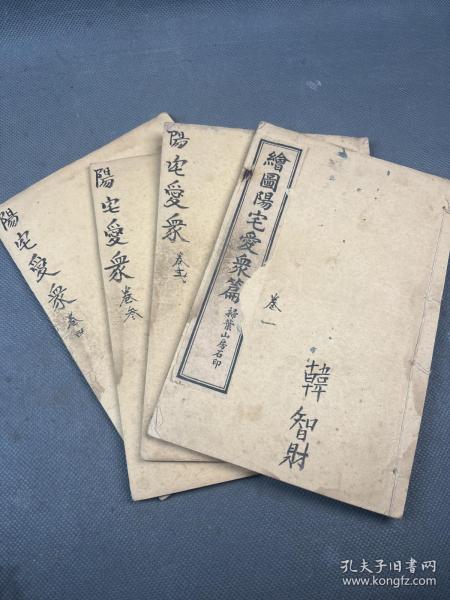 繪圖陽宅愛衆篇
掃葉山房石印
卷一
韓智財
陽宅愛衆
卷弍
陽宅愛衆
卷叁
陽宅愛衆
卷四
孔夫子旧书网
www.kongfz.com